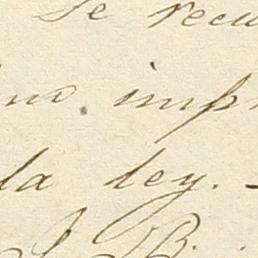 Se recu
imp
la ley.
B.